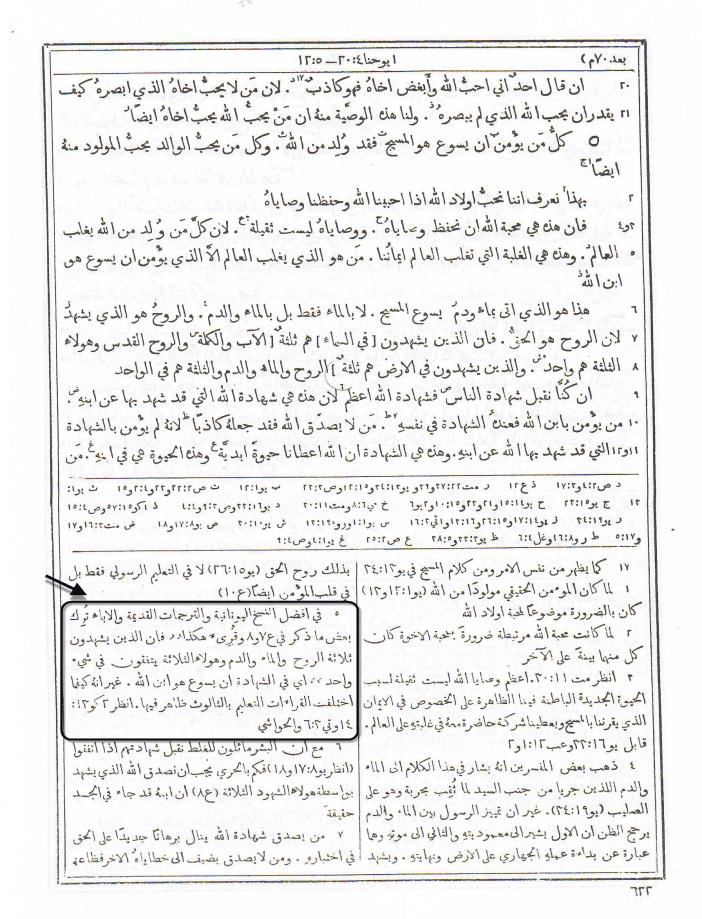 بعد ٧٠م)
١ يوحنا ٤: ٢٠ – ٥: ١٢
٢٠ ان قال احدٌ اني احبُّ الله وأبغض اخاهُ فهو كاذبٌ١٧. لان مَن لا يحبُّ اخاهُ الذي ابصرهُ كيف
٢١ يقدر ان يحب الله الذي لم يبصرهُ. ولنا هذه الوصيَّة منهُ ان مَنْ يحبُّ الله يحبُّ اخاهُ ايضًا
٥ كلُّ مَن يؤْمن ان يسوع هو المسيح فقد وُلِد من الله. وكل مَن يحبُّ الوالد يحبُّ المولود منهُ
ايضًا
٢ بهذا نعرف اننا نحبُّ اولاد الله اذا احببنا الله وحفظنا وصاياهُ
٣و٤ فان هذه هي محبة الله ان نحفظ وصاياهُ. ووصاياهُ ليست ثقيلة. لان كلَّ مَن وُلِد من الله يغلب
٥ العالم. وهذه هي الغلبة التي تغلب العالم ايماننا. مَن هو الذي يغلب العالم الَّا الذي يؤْمن ان يسوع هو
ابن الله
٦ هذا هو الذي اتى بماءٍ ودمٍ يسوع المسيح. لا بالماء فقط بل بالماء والدم. والروح هو الذي يشهدُ
٧ لان الروح هو الحقُّ. فان الذين يشهدون [في السماء] هم ثلثةٌ [الآب والكلمة والروح القدس وهولاء
٨ الثلثة هم واحدٌ. والذين يشهدون في الارض هم ثلثةٌ] الروح والماء والدم والثلثة هم في الواحد
٩ ان كنَّا نقبل شهادة الناس فشهادة الله اعظم٦ لان هذه هي شهادة الله التي قد شهد بها عن ابنهِ.
١٠ من يؤْمن بابن الله فعندهُ الشهادة في نفسهِ٧. مَن لا يصدّق الله فقد جعلهُ كاذبًا لانهُ لم يؤْمن بالشهادة
١١و١٢ التي قد شهد بها الله عن ابنهِ. وهذه هي الشهادة ان الله اعطانا حيوةً ابديَّةً وهذه الحيوة هي في ابنهِ. مَن
١٧ كما يظهر من نفس الامر ومن كلام المسيح في يو ١٣: ٣٤
١ لما كان المؤمن الحقيقي مولودًا من الله (يو ١: ١٢و١٣)
كان بالضرورة موضوعًا لمحبة اولاد الله
٢ لما كانت محبة الله مرتبطة ضرورةً بمحبة الاخوة كان
كل منهما بينةً على الآخر
٣ انظر مت ١١: ٣٠. اعظم وصايا الله ليست ثقيلة لسبب
الحيوة الجديدة الباطنة فينا الظاهرة على الخصوص في الايمان
الذي يقرننا بالمسيح ويعطينا شركة حاضرة معهُ في غلبتهِ على العالم.
قابل يو ١٦: ٢٢ وعب ١٢: ١و٢
٤ ذهب بعض المفسرين انه يشار في هذا الكلام الى الماء
والدم اللذين جريا من جنب السيد لما ثُقِب بحربة وهو على
الصليب (يو ١٩: ٣٤). غير ان تمييز الرسول بين الماء والدم
يرجح الظن ان الاول يشير الى معموديتهِ والثاني الى موتهِ وهما
عبارة عن بداءة عملهِ الجهاري على الارض ونهايتهِ. ويشهد
بذلك روح الحق (يو ١٥: ٢٦) لا في التعليم الرسولي فقط بل
في قلب المؤمن ايضًا (ع ١٠)
٥ في افضل النسخ اليونانية والترجمات القديمة والاباء تُرِك
بعض ما ذكر في ع ٧و٨ وقُرِئ هكذا ,, فان الذين يشهدون
ثلاثة الروح والماء والدم وهولاء الثلاثة يتفقون في شيءٍ
واحد ,, اي في الشهادة ان يسوع هو ابن الله. غير انهُ كيفما
اختلفت القراءات التعليم بالثالوث ظاهر فيها. انظر ٢كو ١٣:
١٤ و١تي ٢: ٦ والحواشي
٦ مع ان البشر مائلون للغلط نقبل شهادتهم اذا اتفقوا
(انظر يو ٨: ١٧و١٨) فكم بالحري يجب ان نصدق الله الذي يشهد
بواسطة هولاء الشهود الثلاثة (ع ٨) ان ابنهُ قد جاء في الجسد
حقيقةً
٧ من يصدق شهادة الله ينال برهانًا جديدًا على الحق
في اختبارهِ. ومن لا يصدق يضيف الى خطاياهُ الاخر فظاعة
٦٢٢